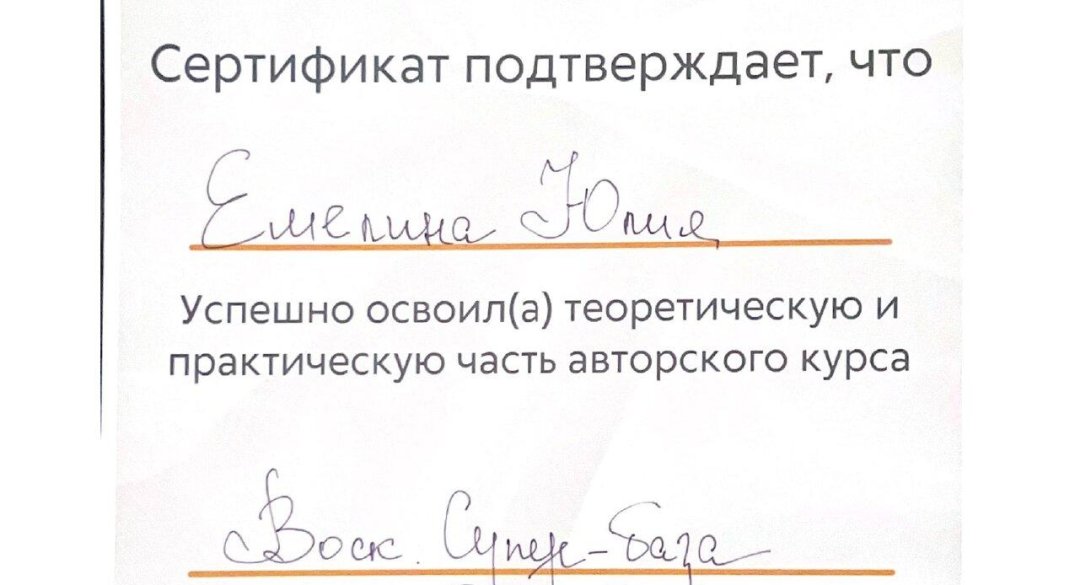 Сертификат подтверждает, что
Емелина Юлия
Успешно освоил(а) теоретическую и
практическую часть авторского курса
Воск. Супер-база